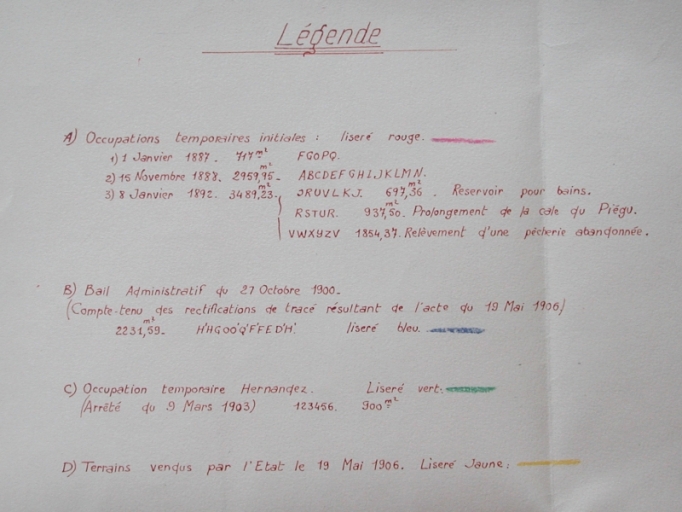 Légende
A) Occupations temporaires initiales : liseré rouge.
1) 1 Janvier 1887. 717 m² FGOPQ.
2) 15 Novembre 1888. 2959,95 m². ABCDEFGHIJKLMN.
3) 8 Janvier 1892. 3489,23 m². JRUVLKJ. 697,36 m². Réservoir pour bains.
RSTUR. 937,50 m². Prolongement de la cale du Piégu.
VWXYZV 1854,37. Relèvement d'une pêcherie abandonnée.
B) Bail Administratif du 27 Octobre 1900.
(Compte-tenu des rectifications de tracé résultant de l'acte du 19 Mai 1906)
2231,59 m². H'HGOO'Q'F'FEDH'. liseré bleu.
C) Occupation temporaire Hernandez. Liseré vert:
(Arrêté du 9 Mars 1903) 123456. 900 m²
D) Terrains vendus par l'Etat le 19 Mai 1906. Liseré Jaune: